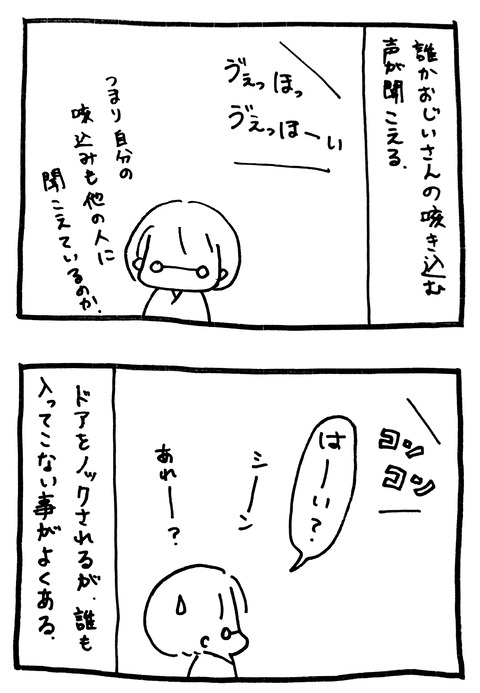 誰かおじいさんの咳き込む
声が聞こえる.
ゔぇっほっ
ゔぇっほーい
つまり自分の
咳込みも他の人に
聞こえているのか.
コンコン
はーい?
シーン
あれー?
ドアをノックされるが.誰も
入ってこない事がよくある.